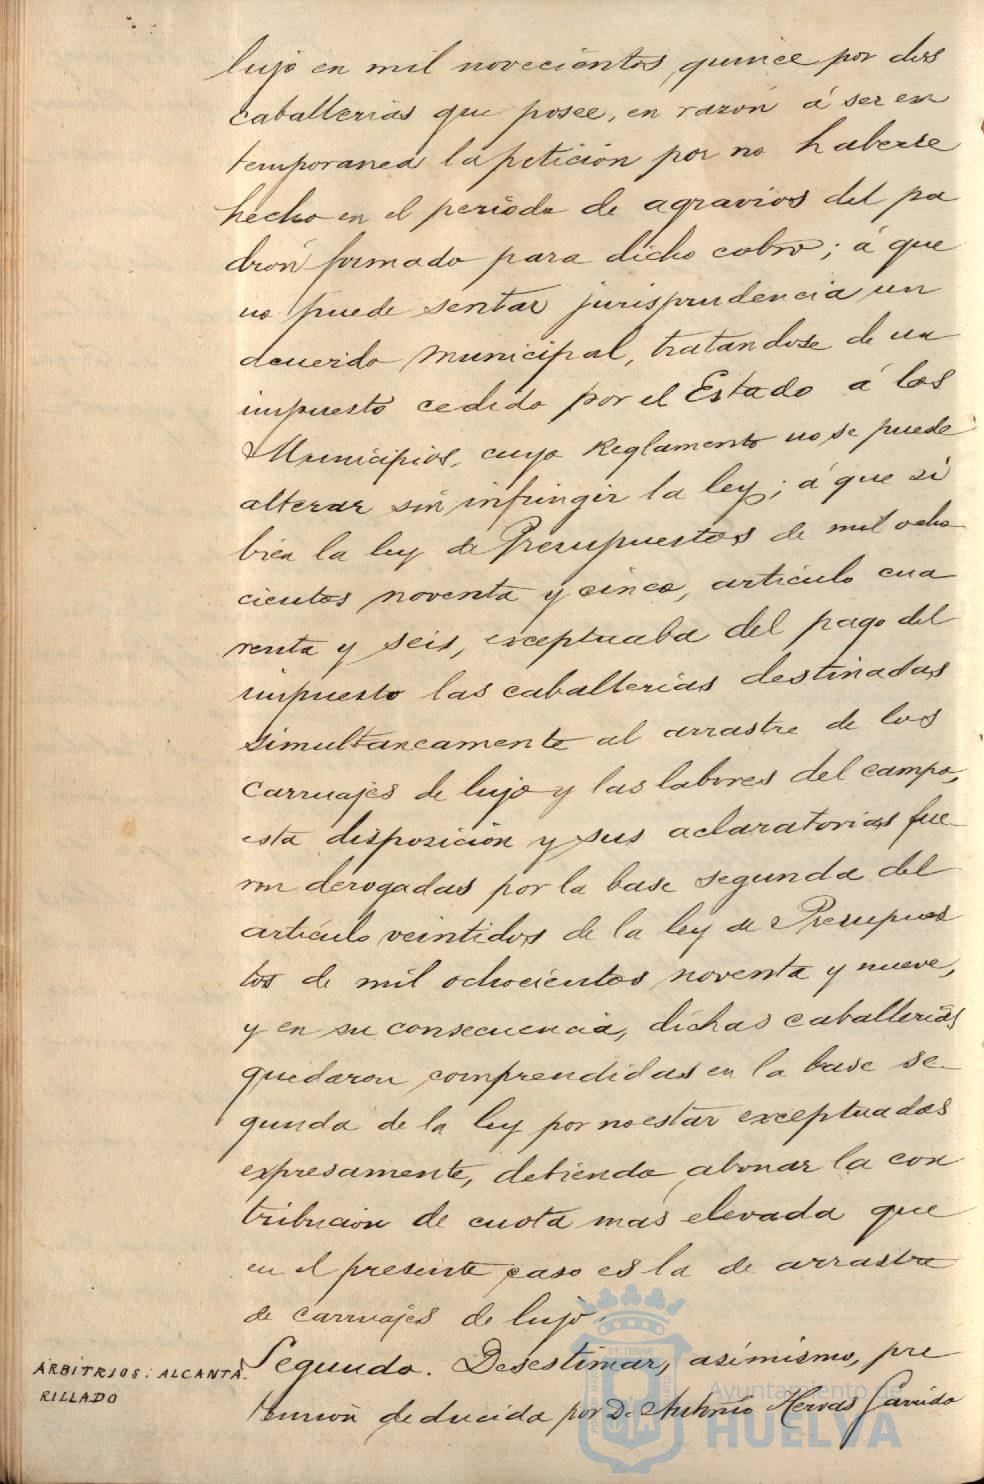 lujo en mil novecientos quince por dos
caballerias que posee, en razón á ser ex
temporanea la peticion por no haberse
hecho en el periodo de agravios del pa
drón formado para dicho cobro; á que
no puede sentar jurisprudencia un
acuerdo municipal, tratandose de un
impuesto cedido por el Estado á los
Municipios, cuyo Reglamento no se puede
alterar sin infringir la ley; á que si
bien la ley de Presupuestos de mil ocho
cientos noventa y cinco, articulo cua
renta y seis, exceptuaba del pago del
impuesto las caballerias destinadas
simultaneamente al arrastre de los
carruajes de lujo y las labores del campo,
esta disposicion y sus aclaratorias fue
ron derogadas por la base segunda del
artículo veintidos de la ley de Presupues
tos de mil ochocientos noventa y nueve,
y en su consecuencia, dichas caballerias
quedaron comprendidas en la base se-
gunda de la ley por no estar exceptuadas
expresamente, debiendo abonar la con
tribucion de cuota mas elevada que
en el presente caso es la de arrastre
de carruajes de lujo.
ARBITRIOS: ALCANTA-
RILLADO
Segundo. Desestimar, asimismo, pre
tension deducida por D. Antonio Hervas Garrido
Ayuntamiento de
HUELVA